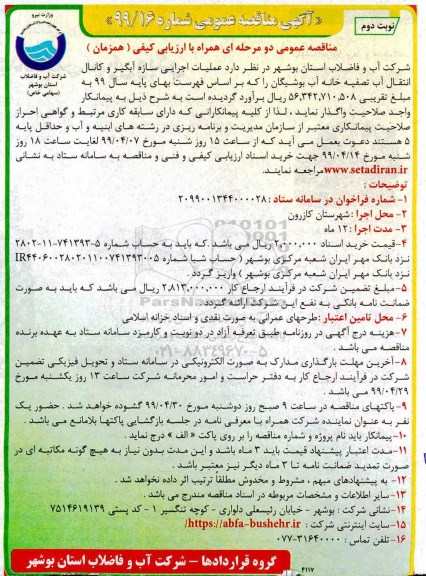 نوبت دوم
« آگهی مناقصه عمومی شماره ۹۹/۱۶ »
وزارت نیرو
شرکت آب و فاضلاب
استان بوشهر
(سهامی خاص)
مناقصه عمومی دو مرحله ای همراه با ارزیابی کیفی ( همزمان )
شرکت آب و فاضلاب استان بوشهر در نظر دارد عملیات اجرایی سازه آبگیر و کانال
انتقال آب تصفیه خانه آب بوشیگان را که بر اساس فهرست بهای پایه سال ۹۹ به
مبلغ تقریبی ۵۶,۳۴۲,۷۱۰,۵۰۸ ریال برآورد گردیده است به شرح ذیل به پیمانکار
واجد صلاحیت واگذار نماید ، لذا از کلیه پیمانکارانی که دارای سابقه کاری مرتبط و گواهی احراز
صلاحیت پیمانکاری معتبر از سازمان مدیریت و برنامه ریزی در رشته های ابنیه و آب و حداقل پایه
۵ هستند دعوت بعمل می آید که از ساعت ۱۵ روز شنبه مورخ ۹۹/۰۴/۰۷ لغایت ساعت ۱۸ روز
شنبه مورخ ۹۹/۰۴/۱۴ جهت خرید اسناد ارزیابی کیفی و فنی و مناقصه به سامانه ستاد به نشانی
www.setadiran.ir مراجعه نمایند.
توضیحات :
۱- شماره فراخوان در سامانه ستاد : ۲۰۹۹۰۰۱۳۴۴۰۰۰۰۲۸
۲- محل اجرا : شهرستان کازرون
۳- مدت اجرا : ۱۲ ماه
۴- قیمت خرید اسناد ۲,۰۰۰,۰۰۰ ریال می باشد .که باید به حساب شماره ۵-۷۴۱۳۹۳-۱۱-۲۸۰۲
نزد بانک مهر ایران شعبه مرکزی بوشهر ( حساب شبا شماره
نزد بانک مهر ایران شعبه مرکزی بوشهر ) واریز گردد .
۵- مبلغ تضمین شرکت در فرآیند ارجاع کار ۲,۸۱۳,۰۰۰,۰۰۰ ریال می باشد که باید به صورت
ضمانت نامه بانکی به نفع این شرکت ارائه گردد .
۶- محل تامین اعتبار :طرحهای عمرانی به صورت نقدی و اسناد خزانه اسلامی
۷- هزینه درج آگهی در روزنامه طبق تعرفه آزاد در دو نوبت و کارمزد سامانه ستاد به عهده برنده
مناقصه می باشد .
۸- آخرین مهلت بارگذاری مدارک به صورت الکترونیکی در سامانه ستاد و تحویل فیزیکی تضمین
شرکت در فرآیند ارجاع کار به دفتر حراست و امور محرمانه شرکت ساعت ۱۳ روز یکشنبه مورخ
۹۹/۰۴/۲۹ می باشد .
۹- پاکتهای مناقصه در ساعت ۹ صبح روز دوشنبه مورخ ۹۹/۰۴/۳۰ گشوده خواهد شد . حضور یک
نفر به عنوان نماینده شرکت همراه با معرفی نامه در جلسه بازگشایی پاکتها بلامانع می باشد .
۱۰- پیمانکار باید نام پروژه و شماره مناقصه را بر روی پاکت « الف » درج نماید .
۱۱- مدت اعتبار پیشنهاد قیمت باید ۳ ماه باشد و این مدت بدون نیاز به هیچ گونه مکاتبه ای در
صورت تمدید ضمانت نامه تا ۳ ماه دیگر نیز معتبر باشد .
۱۲- به پیشنهادهای مبهم ، مشروط و مخدوش مطلقاً ترتیب اثر داده نخواهد شد .
۱۳- سایر اطلاعات و مشخصات مربوطه در اسناد مناقصه مندرج می باشد .
۱۴- نشانی شرکت : بوشهر - خیابان رئیسعلی دلواری - کوچه تنگسیر ۱ - کد پستی ۷۵۱۴۶۱۹۱۳۹
۱۵- سایت اینترنتی شرکت : https://abfa-bushehr.ir/
۱۶- تلفن تماس : ۳۱۶۴۰۰۰۰-۰۷۷
گروه قراردادها - شرکت آب و فاضلاب استان بوشهر
۴۱۱۷